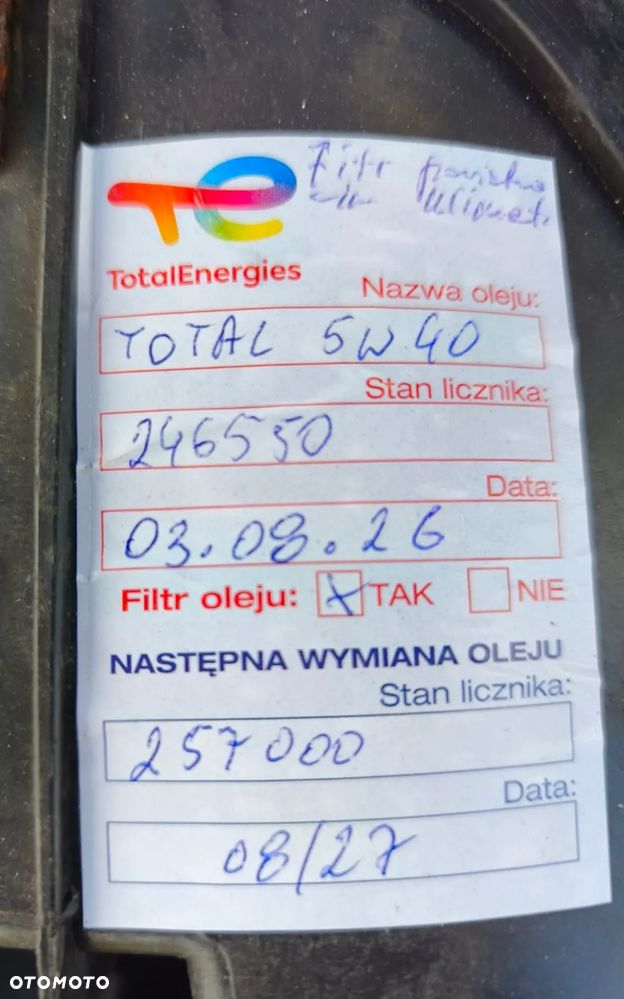 Filtr
TotalEnergies
Nazwa oleju:
TOTAL 5W40
Stan licznika:
246550
Data:
03.08.26
Filtr oleju: X TAK NIE
NASTĘPNA WYMIANA OLEJU
Stan licznika:
257000
Data:
08/27
OTOMOTO